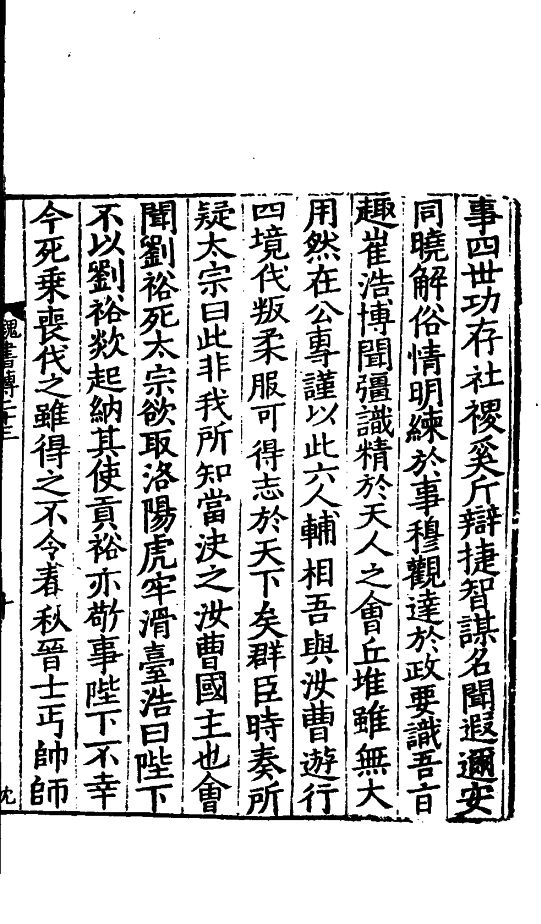 事四世功存社稷奚斤辯捷智謀名聞遐邇安
同曉解俗情明練於事穆觀達於政要識吾旨
趣崔浩博聞彊識精於天人之會丘堆雖無大
用然在公專謹以此六人輔相吾與汝曹遊行
四境伐叛柔服可得志於天下矣群臣時奏所
疑太宗曰此非我所知當決之汝曹國主也會
聞劉裕死太宗欲取洛陽虎牢滑臺浩曰陛下
不以劉裕欻起納其使貢裕亦敬事陛下不幸
今死乗喪伐之雖得之不令春秋晉士丐帥師
魏書傳二十三
十